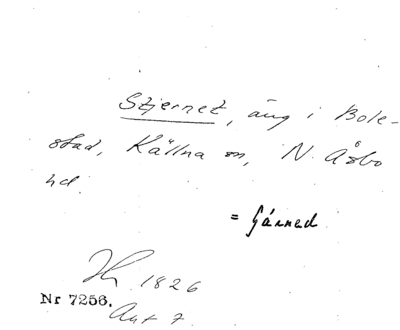 Stjernet, äng i Bole-
stad, Källna sn, N. Åsbo
hd.
= Gárned
1826
Nr 7256.
Akt 7.